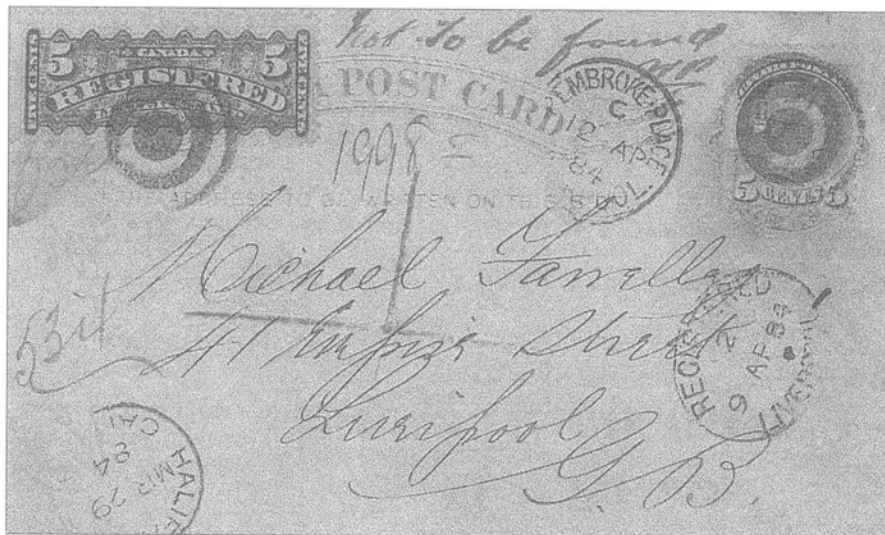 5 CANADA 5
REGISTERED
Not to be found
POST CARD
1998
EMBROKE·PLACE
C
12 AP
84
L'POOL
TO BE WRITTEN ON THIS SIDE
5 5
Michael Farrelly
41 Empire Street
Liverpool
G.B.
534
REGISTERED
2
9 AP 84
LIVERPOOL
HALIFA
MR 29
84
CAN